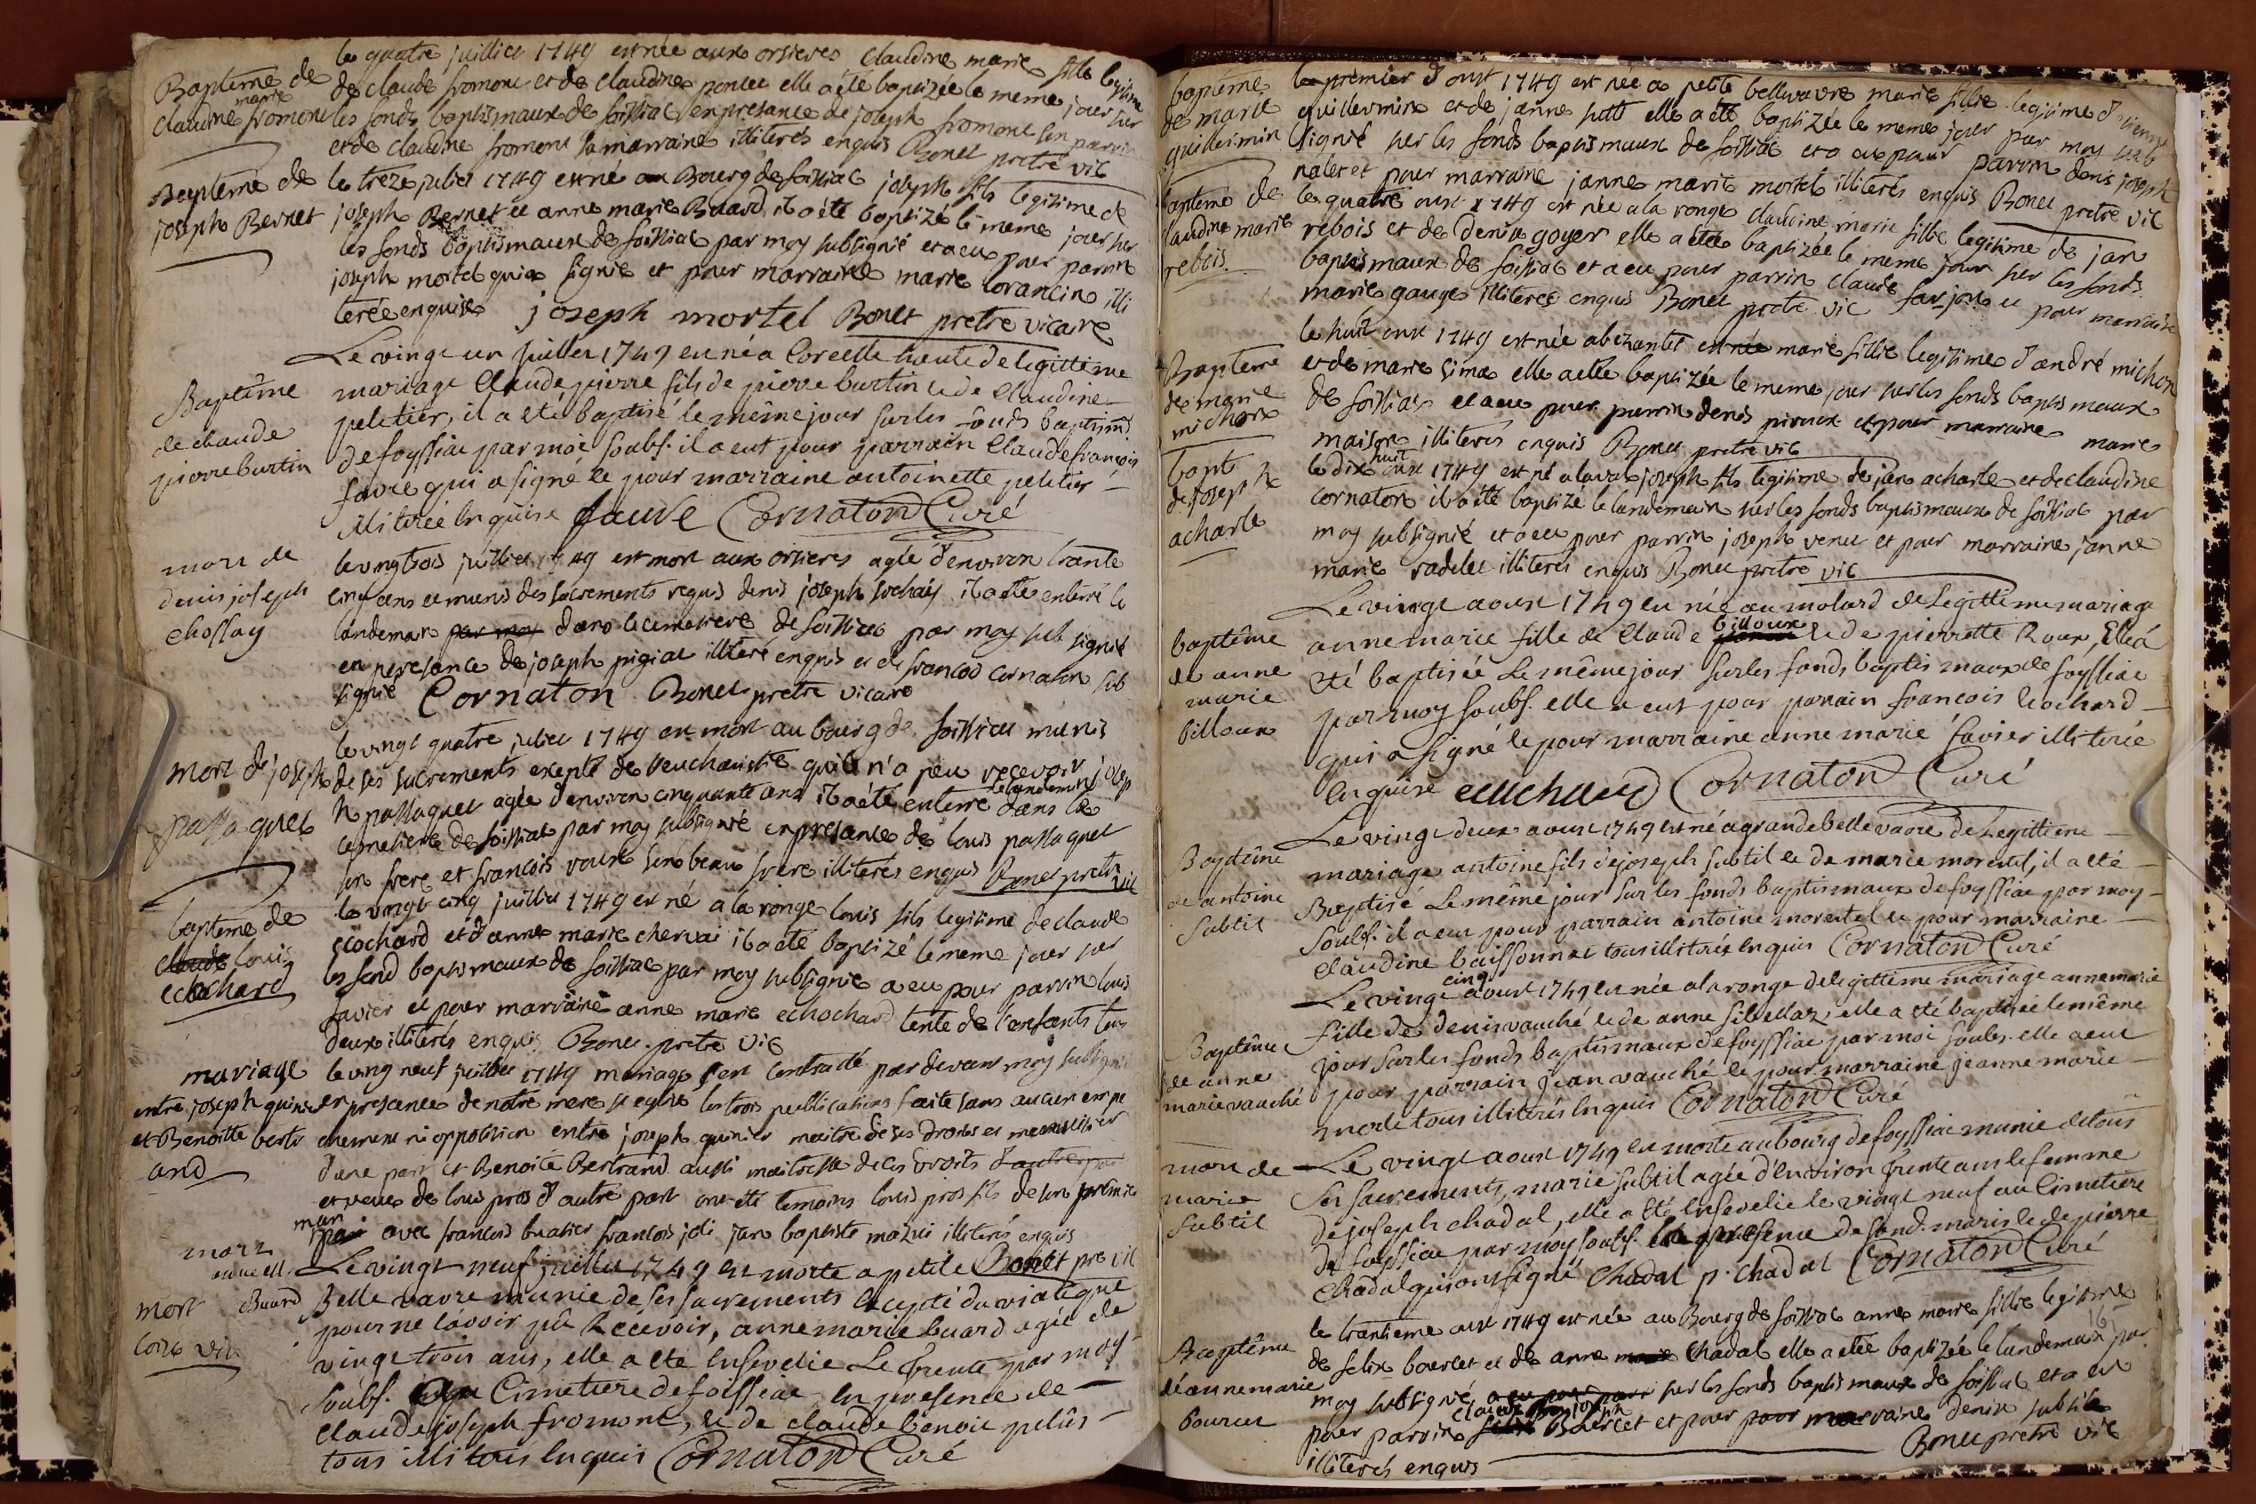 le quatre juillier 1749 est née aux orsieres claudine marie fille legitime
Bapteme de
claudine marie fromont
de claude fromont et de claudine poncet elle a été baptizée le meme jour sur
les fonds baptismaux de foissiac en presance de joseph fromont son parrin
et de claudine fromont sa marraine illiterés enquis Bonet pretre vic
Bapteme de
joseph Bernet
le treze julier 1749 est né au Bourg de foissiac joseph fils legitime de
joseph Bernet et anne marie Buard il a été baptizé le meme jour sur
les fonds baptismaux de foissiac par moy subsigné et a eu pour parrin
joseph mortel qui a signé et pour marraine marie lorancin illi
terée enquise joseph mortel Bonet pretre vicare
Baptême
de claude
pierre burtin
Le vingt un juillet 1749 est né a Corcelle haute de legittime
mariage Claude pierre fils de pierre burtin et de Claudine
peletier, il a été baptisé le même jour sur les fonds baptism.
de foyssiac par moi soubs. il a eut pour parrain Claude françois
favre qui a signé et pour marraine antoinette peletier
illiterée Enquise fauvre Cornaton Curé
mort de
denis joseph
chossay
le vingtrois juillier 1749 est mort aux orsieres agée d'environ trante
cinq ans et munis des sacrements requis denis joseph sochay il a été enterré le
landemain par moy dans le cimetiere de foissiac par moy sub signé
en peresance de joseph pigiat illiteré enquis et de francois cornaton sub
signé Cornaton Bonet pretre vicare
mort de joseph
passaquet
le vingt quatre julier 1749 est mort au bourg de foissiac munis
de ses sacrements exepté de l'eucharistie quil n'a peu recevoir josep
h passaquet agée d'environ cinquante ans il a été enterré le landemain dans le
cimetiere de foissiac par moy subsigné en presance de louis passaquet
son frere et francois roux son beau frere illiterés enquis Bonet pretre vic
bapteme de
claude louis
ecochard
le vingt cinq juillier 1749 est né a la ronge louis fils legitime de claude
ecochard et d'anne marie chervai il a été baptizé le meme jour sur
les fond baptismaux de foissiac par moy subsigné a eu pour parrin louis
favier et pour marraine anne marie echochard tente de l'enfants tous
deux illiterés enquis Bonet pretre vic
mariage
entre joseph quinier
et Benoitte bertr
and
le ving neuf juillier 1749 mariage s'est contracté par devant moy subsigné
en presance de notre mere ste eglise les trois publications faite sans aucun empe
chement ni opposition entre joseph quinier maitre de ses droits et menuisier
d'une part et Benoite Bertrand aussi maitresse de ses droits d'autre part
et veuve de louis pros d'autre part ont été temoins louis pros fils de son premier
mari avec francois buatier francois joli jan baptiste maziri illiterés enquis
Bonet pre vic
mort
anne m.
Buard
mort
Le vingt neuf juillet 1749 est morte a petite
Belle vavre munie de ses sacrements excepté du viatique
pour ne l'avoir pû Recevoir, anne marie buard agée de
vingt trois ans, elle a été Ensevelie Le trente par moy
soubs. au Cimetiere de foissiac En presence de
claude joseph fromont, et de claude benoit pelûs
tous illiterés Enquis Cornaton Curé
bapteme
de marie
guillermin
le premier d'oust 1749 est née a petite bellevavre marie fillie legitime d'etienne
guillermin et de janne sutil elle a été baptizée le meme jour par moy sub
signé sur les fonds baptismaux de foissiac et a eu pour parrin denis joseph
nalet et pour marraine janne marie mortel illiterés enquis Bonet pretre vic
bapteme de
claudine marie
rebois
le quatre oust 1749 est née a la ronge claudine marie fillie legitime de jan
rebois et de denise goyer elle a étée baptizée le meme jour sur les fonds
baptismaux de foissiac et a eu pour parrin claude farjon et pour marraine
marie gauge illiterés enquis Bonet pretre vic
Bapteme
de marie
michon
le huit oust 1749 est née a bezantet est née marie fillie legitime d'andré michon
et de marie sima elle a été baptizée le meme jour sur les fonds baptismaux
de foissiac et a eu pour parrin denis piroux et pour marraine marie
maison illiterés enquis Bonet pretre vic
bapt
de joseph
acharle
le dix huit oust 1749 est né a laval joseph fils legitime de jan acharle et de claudine
cornaton il a été baptizé le landemain sur les fonds baptismaux de foissiac par
moy subsigné et a eu pour parrin joseph venet et pour marraine janne
marie radelet illiterés enquis Bonet pretre vic
baptême
de anne
marie
billoux
Le vingt aoust 1749 est née au molard de Legittime mariage
anne marie fille de Claude billoux et de pierrette Roux, Elle a
eté baptisée Le même jour sur les fonds baptismaux de foyssiac
par moy soubs. elle a eut pour parrain francois Ecochard
qui a signé et pour marraine anne marie favier illiterée
Enquise ecuchard Cornaton Curé
Baptême
de antoine
Subtil
Le vingt deux aoust 1749 est né a grande belle vavre de Legittime
mariage antoine fils de joseph subtil et de marie morestel, il a eté
Baptisé Le même jour sur les fonds baptismaux de foyssiac par moy
soubs. il a eu pour parrain antoine morestel et pour marraine
Claudine buissonnet tous illiterés Enquis Cornaton Curé
Baptême
de anne
marie vauché
Le vingt cinq aoust 1749 est née a la ronge de legittime mariage anne marie
fille de denis vauché et de anne sibellas elle a eté baptisée le même
jour sur les fonds baptismaux de foyssiac par moi soubs. elle a eut
pour parrain jean vauché et pour marraine jeanne marie
morel tous illiterés Enquis Cornaton Curé
mort de
marie
Subtil
Le vingt aoust 1749 est morte au bourg de foyssiac munie de tous
ses sacrements, marie subtil agée d'environ trente ans le femme
de joseph chadal, elle a été Ensevelie le vingt neuf au Cimetiere
de foyssiac par moy soubs. En presence de sond. maris et de pierre
Chadal qui ont signé Chadal p. chadal Cornaton Curé
Baptême
de anne marie
bourcet
le trantieme oust 1749 est née au Bourg de foissiac anne marie fillie legitime
de felix bourcet et de anne marie Chadal elle a étée baptizée le landemain par
moy subsigné a eu pour parri sur les fonds baptismaux de foissiac et a eu
pour parrin felix Bourcet et pour pour marraine denise subtile
illiterés enquis Bonet pretre vic